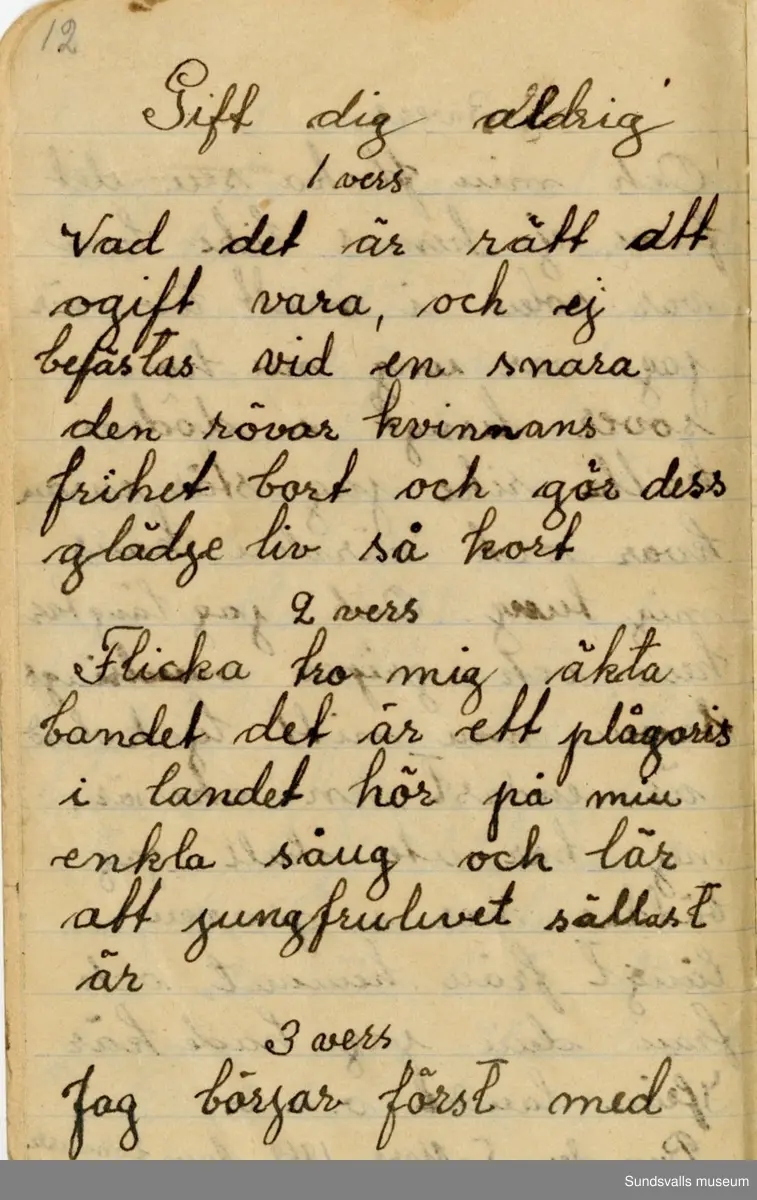 12
Gift dig aldrig
1 vers
Vad det är rätt att
ogift vara, och ej
befästas vid en snara
den rövar kvinnans
frihet bort och gör dess
glädje liv så kort
2 vers
Flicka tro mig äkta
bandet det är ett plågoris
i landet hör på min
enkla sång och lär
att jungfrulivet sällast
är
3 vers
Jag börjar först med
Sundsvalls museum